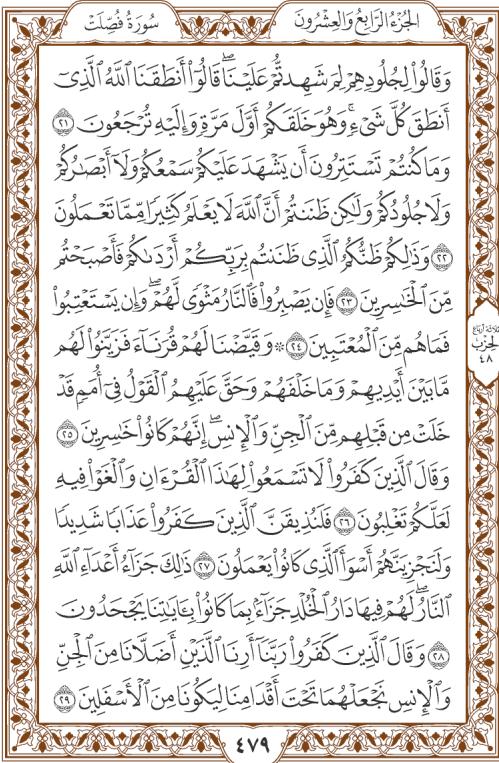 الجزء الرابع والعشرون
سورة فصلت
وَقَالُوا۟ لِجُلُودِهِمْ لِمَ شَهِدتُّمْ عَلَيْنَا ۖ قَالُوٓا۟ أَنطَقَنَا ٱللَّهُ ٱلَّذِىٓ
أَنطَقَ كُلَّ شَىْءٍ ۚ وَهُوَ خَلَقَكُمْ أَوَّلَ مَرَّةٍ وَإِلَيْهِ تُرْجَعُونَ ٢١
وَمَا كُنتُمْ تَسْتَتِرُونَ أَن يَشْهَدَ عَلَيْكُمْ سَمْعُكُمْ وَلَآ أَبْصَٰرُكُمْ
وَلَا جُلُودُكُمْ وَلَٰكِن ظَنَنتُمْ أَنَّ ٱللَّهَ لَا يَعْلَمُ كَثِيرًا مِّمَّا تَعْمَلُونَ
٢٢ وَذَٰلِكُمْ ظَنُّكُمُ ٱلَّذِى ظَنَنتُم بِرَبِّكُمْ أَرْدَىٰكُمْ فَأَصْبَحْتُم
مِّنَ ٱلْخَٰسِرِينَ ٢٣ فَإِن يَصْبِرُوا۟ فَٱلنَّارُ مَثْوًى لَّهُمْ ۖ وَإِن يَسْتَعْتِبُوا۟
فَمَا هُم مِّنَ ٱلْمُعْتَبِينَ ٢٤ ۞ وَقَيَّضْنَا لَهُمْ قُرَنَآءَ فَزَيَّنُوا۟ لَهُم
مَّا بَيْنَ أَيْدِيهِمْ وَمَا خَلْفَهُمْ وَحَقَّ عَلَيْهِمُ ٱلْقَوْلُ فِىٓ أُمَمٍ قَدْ
خَلَتْ مِن قَبْلِهِم مِّنَ ٱلْجِنِّ وَٱلْإِنسِ ۖ إِنَّهُمْ كَانُوا۟ خَٰسِرِينَ ٢٥
وَقَالَ ٱلَّذِينَ كَفَرُوا۟ لَا تَسْمَعُوا۟ لِهَٰذَا ٱلْقُرْءَانِ وَٱلْغَوْا۟ فِيهِ
لَعَلَّكُمْ تَغْلِبُونَ ٢٦ فَلَنُذِيقَنَّ ٱلَّذِينَ كَفَرُوا۟ عَذَابًا شَدِيدًا
وَلَنَجْزِيَنَّهُمْ أَسْوَأَ ٱلَّذِى كَانُوا۟ يَعْمَلُونَ ٢٧ ذَٰلِكَ جَزَآءُ أَعْدَآءِ ٱللَّهِ
ٱلنَّارُ ۖ لَهُمْ فِيهَا دَارُ ٱلْخُلْدِ ۖ جَزَآءًۢ بِمَا كَانُوا۟ بِـَٔايَٰتِنَا يَجْحَدُونَ
٢٨ وَقَالَ ٱلَّذِينَ كَفَرُوا۟ رَبَّنَآ أَرِنَا ٱلَّذَيْنِ أَضَلَّانَا مِنَ ٱلْجِنِّ
وَٱلْإِنسِ نَجْعَلْهُمَا تَحْتَ أَقْدَامِنَا لِيَكُونَا مِنَ ٱلْأَسْفَلِينَ ٢٩
ثلاثة أرباع
الحزب
٤٨
٤٧٩